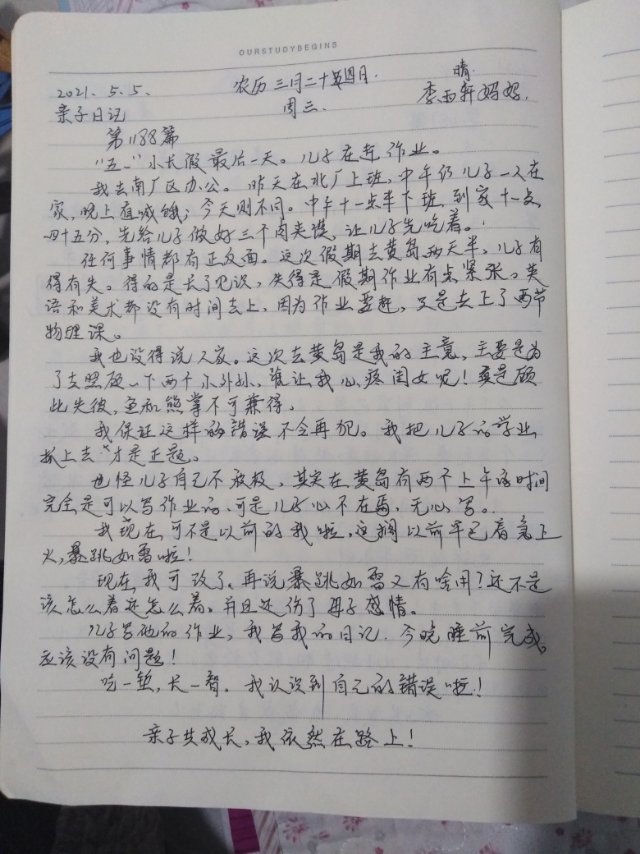 OURSTUDYBEGINS
2021.5.5. 农历三月二十四月. 晴
亲子日记 周三. 李雨轩妈妈.
第1188篇
“五一”小长假最后一天。儿子在赶作业。
我去南厂区办公。昨天在北厂上班,中午仍儿子一人在
家,晚上直喊饿;今天则不同。中午十一点半下班,到家十一点
四十五分,先给儿子做好三个肉夹馍,让儿子先吃着。
任何事情都有正反面。这次假期去黄岛两天半,儿子有
得有失。得的是长了见识,失得是假期作业有点紧张。英
语和美术都没有时间去上,因为作业要赶,只是去上了两节
物理课。
我也没得说人家。这次去黄岛是我的主意,主要是为
了去照顾一下两个小外孙,谁让我心疼闺女呢!真是顾
此失彼,鱼和熊掌不可兼得。
我保证这样的错误不会再犯。我把儿子的学业
抓上去才是正题。
也怪儿子自己不积极,其实在黄岛有两个上午的时间
完全是可以写作业的,可是儿子心不在焉,无心写。
我现在可不是以前的我啦,这搁以前早已着急上
火,暴跳如雷啦!
现在我可改了。再说暴跳如雷又有啥用?还不是
该怎么着还怎么着。并且还伤了母子感情。
儿子写他的作业,我写我的日记.今晚睡前完成
应该没有问题!
吃一堑,长一智.我认识到自己的错误啦!
亲子共成长,我依然在路上!